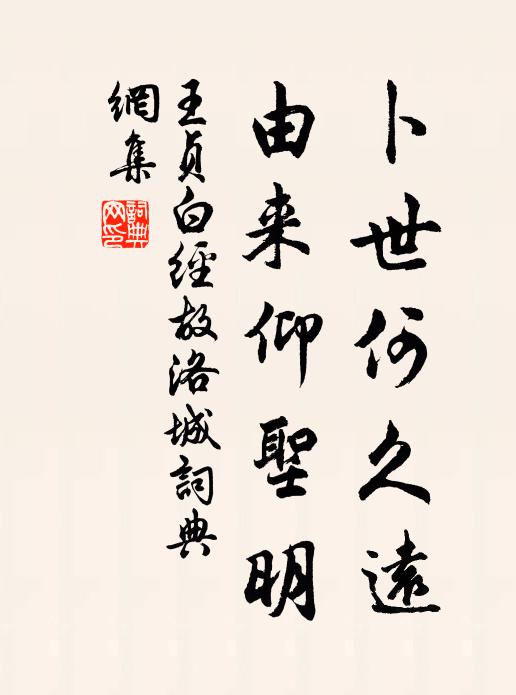 卜世何久遠
由来仰聖明
王貞白經故洛城詞典
網集
詞典
网印